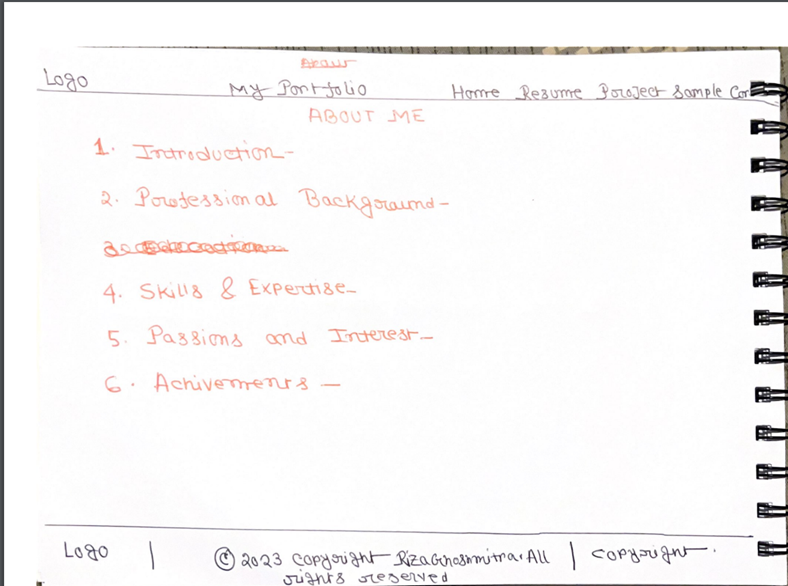 Logo My Portfolio Home Resume Project Sample
ABOUT ME
1. Introduction-
2. Professional Background-
4. Skills & Expertise-
5. Passions and Interest-
6. Achivements -
Logo | © 2023 copyright RizaGhoshmitra. All | copyright.
rights reserved